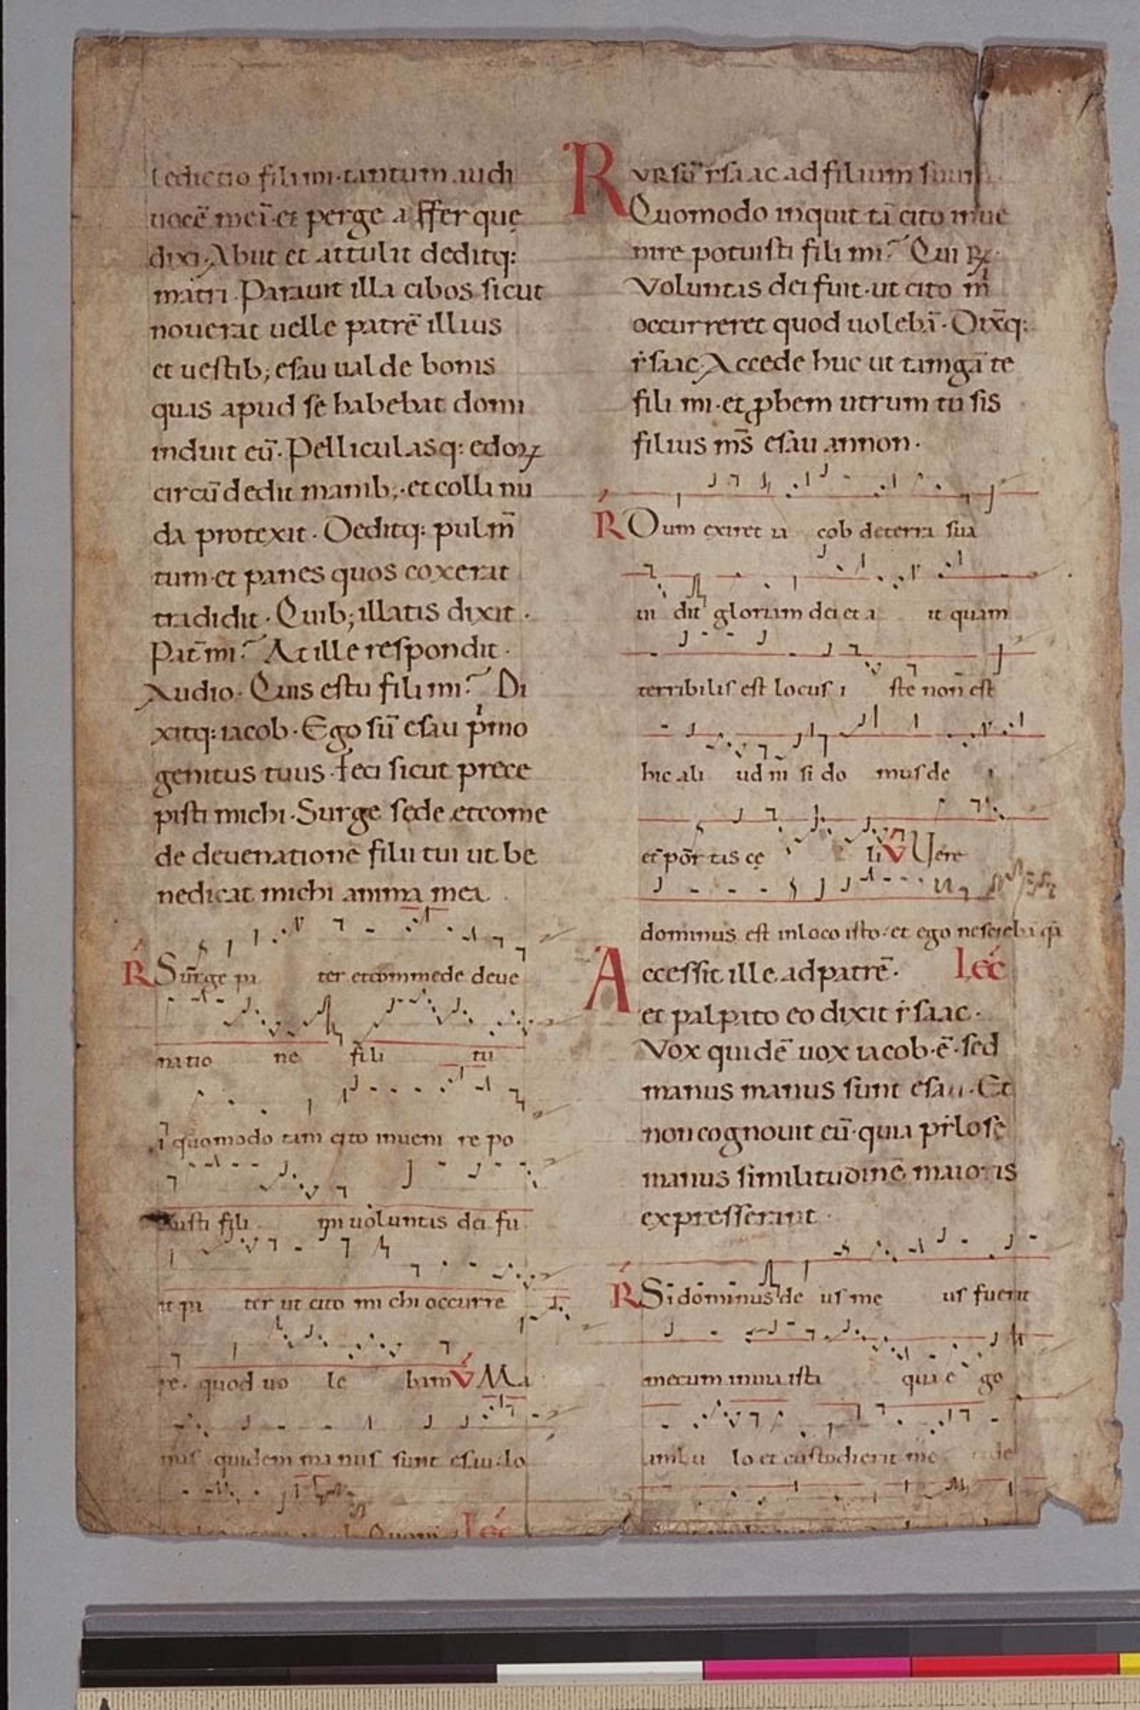 ledictio fili mi· tantum audi
uocē meā· et perge affer quę
dixi· Abiit et attulit deditq:
matri· Parauit illa cibos sicut
nouerat uelle patrē illius
et uestib; esau ualde bonis
quas apud se habebat domi
induit eū· Pelliculasq: edoꝝ
circūdedit manib;· et colli nu
da protexit· Deditq: pulm̄
tum· et panes quos coxerat
tradidit· Quib; illatis dixit·
Pat̄ mi? At ille respondit·
Audio· Quis es tu fili mi? Di
xitq: iacob· Ego sū esau pͥmo
genitus tuus· Feci sicut prece
pisti michi· Surge sede et come
de de uenatione filii tui ut be
nedicat michi anima mea
℟ Surge pa ter et commede de ue
natio ne fili tu
i quomodo tam cito inueni re po
tuisti fili mi uoluntas dei fu
it pa ter ut cito mi chi occurre
re· quod uo le bam ℣ Ma
nus quidem manus sunt esau· Io
Lec̄
Rursū ysaac ad filium suum
Quomodo inquit tā cito inue
nire potuisti fili mi? Qui ℞·
Voluntas dei fuit· ut cito m̄
occurreret quod uolebā· Dix̄q:
ysaac· Accede huc ut tamgā te
fili mi· et ꝓbem utrum tu sis
filius ms̄ esau annon·
℟ Dum exiret ia cob de terra sua
ui dit gloriam dei et a it quam
terribilis est locus i ste non est
hic ali ud nī si do mus de
et por tis cę li ℣ Vere
dominus est in loco isto· et ego nesciebā
Accessit ille ad patrē· Lec̄
et palpato eo dixit ysaac·
Vox quidē uox iacob· ē· sed
manus manus sunt esau· Et
non cognouit eū· quia pilose
manus similitudinē maioris
expresserant
℟ Si dominus de us me us fuerit
mecum in uia ista qua e go
ambu lo et custodierit me